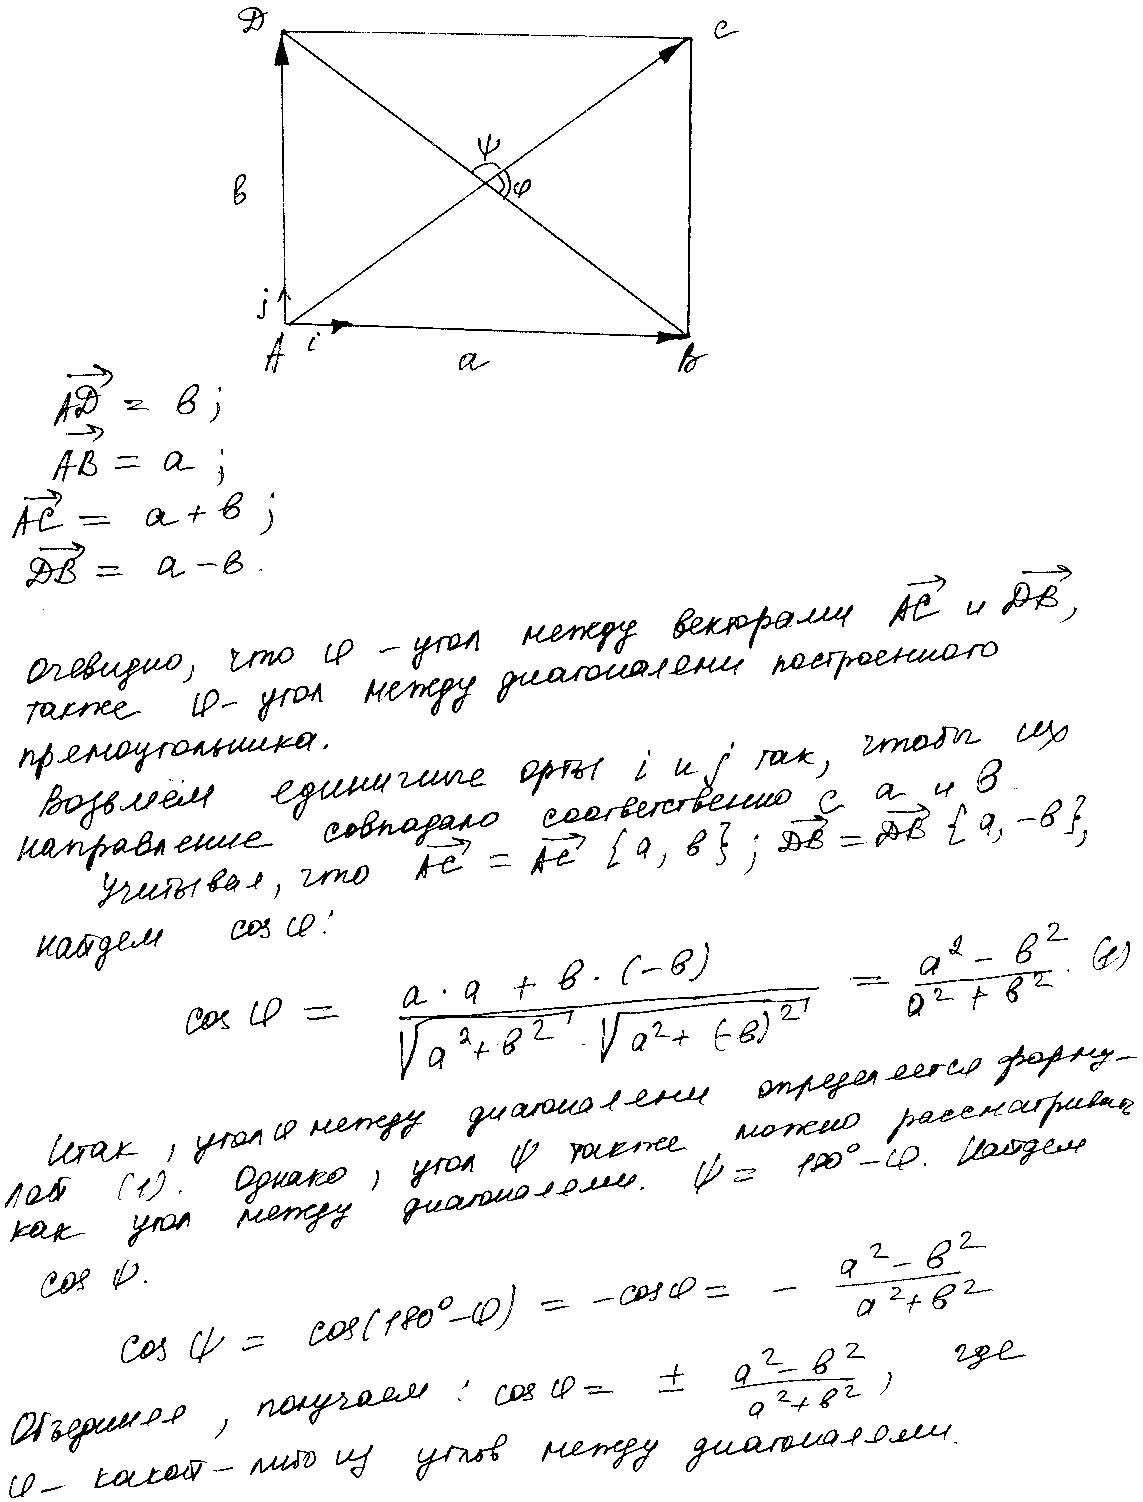 D C
ψ
φ
в
j
A i a B
AD = в;
AB = a;
AC = a + в;
DB = a - в.
очевидно, что φ - угол между векторами AC и DB,
также φ - угол между диагоналями построенного
прямоугольника.
Возьмём единичные орты i и j так, чтобы их
направление совпадало соответственно с a и в.
Учитывая, что AC = AC {a, в}; DB = DB {a, -в},
найдем cos φ:
cos φ = (a · a + в · (-в)) / (√(a² + в²) · √(a² + (-в)²)) = (a² - в²) / (a² + в²). (1)
Итак, угол φ между диагоналями определяется форму-
лой (1). Однако, угол ψ также можно рассматривать
как угол между диагоналями. ψ = 180° - φ. Найдем
cos ψ.
cos ψ = cos(180° - φ) = -cos φ = - (a² - в²) / (a² + в²)
Объединяя, получаем: cos φ = ± (a² - в²) / (a² + в²), где
φ - какой-либо из углов между диагоналями.